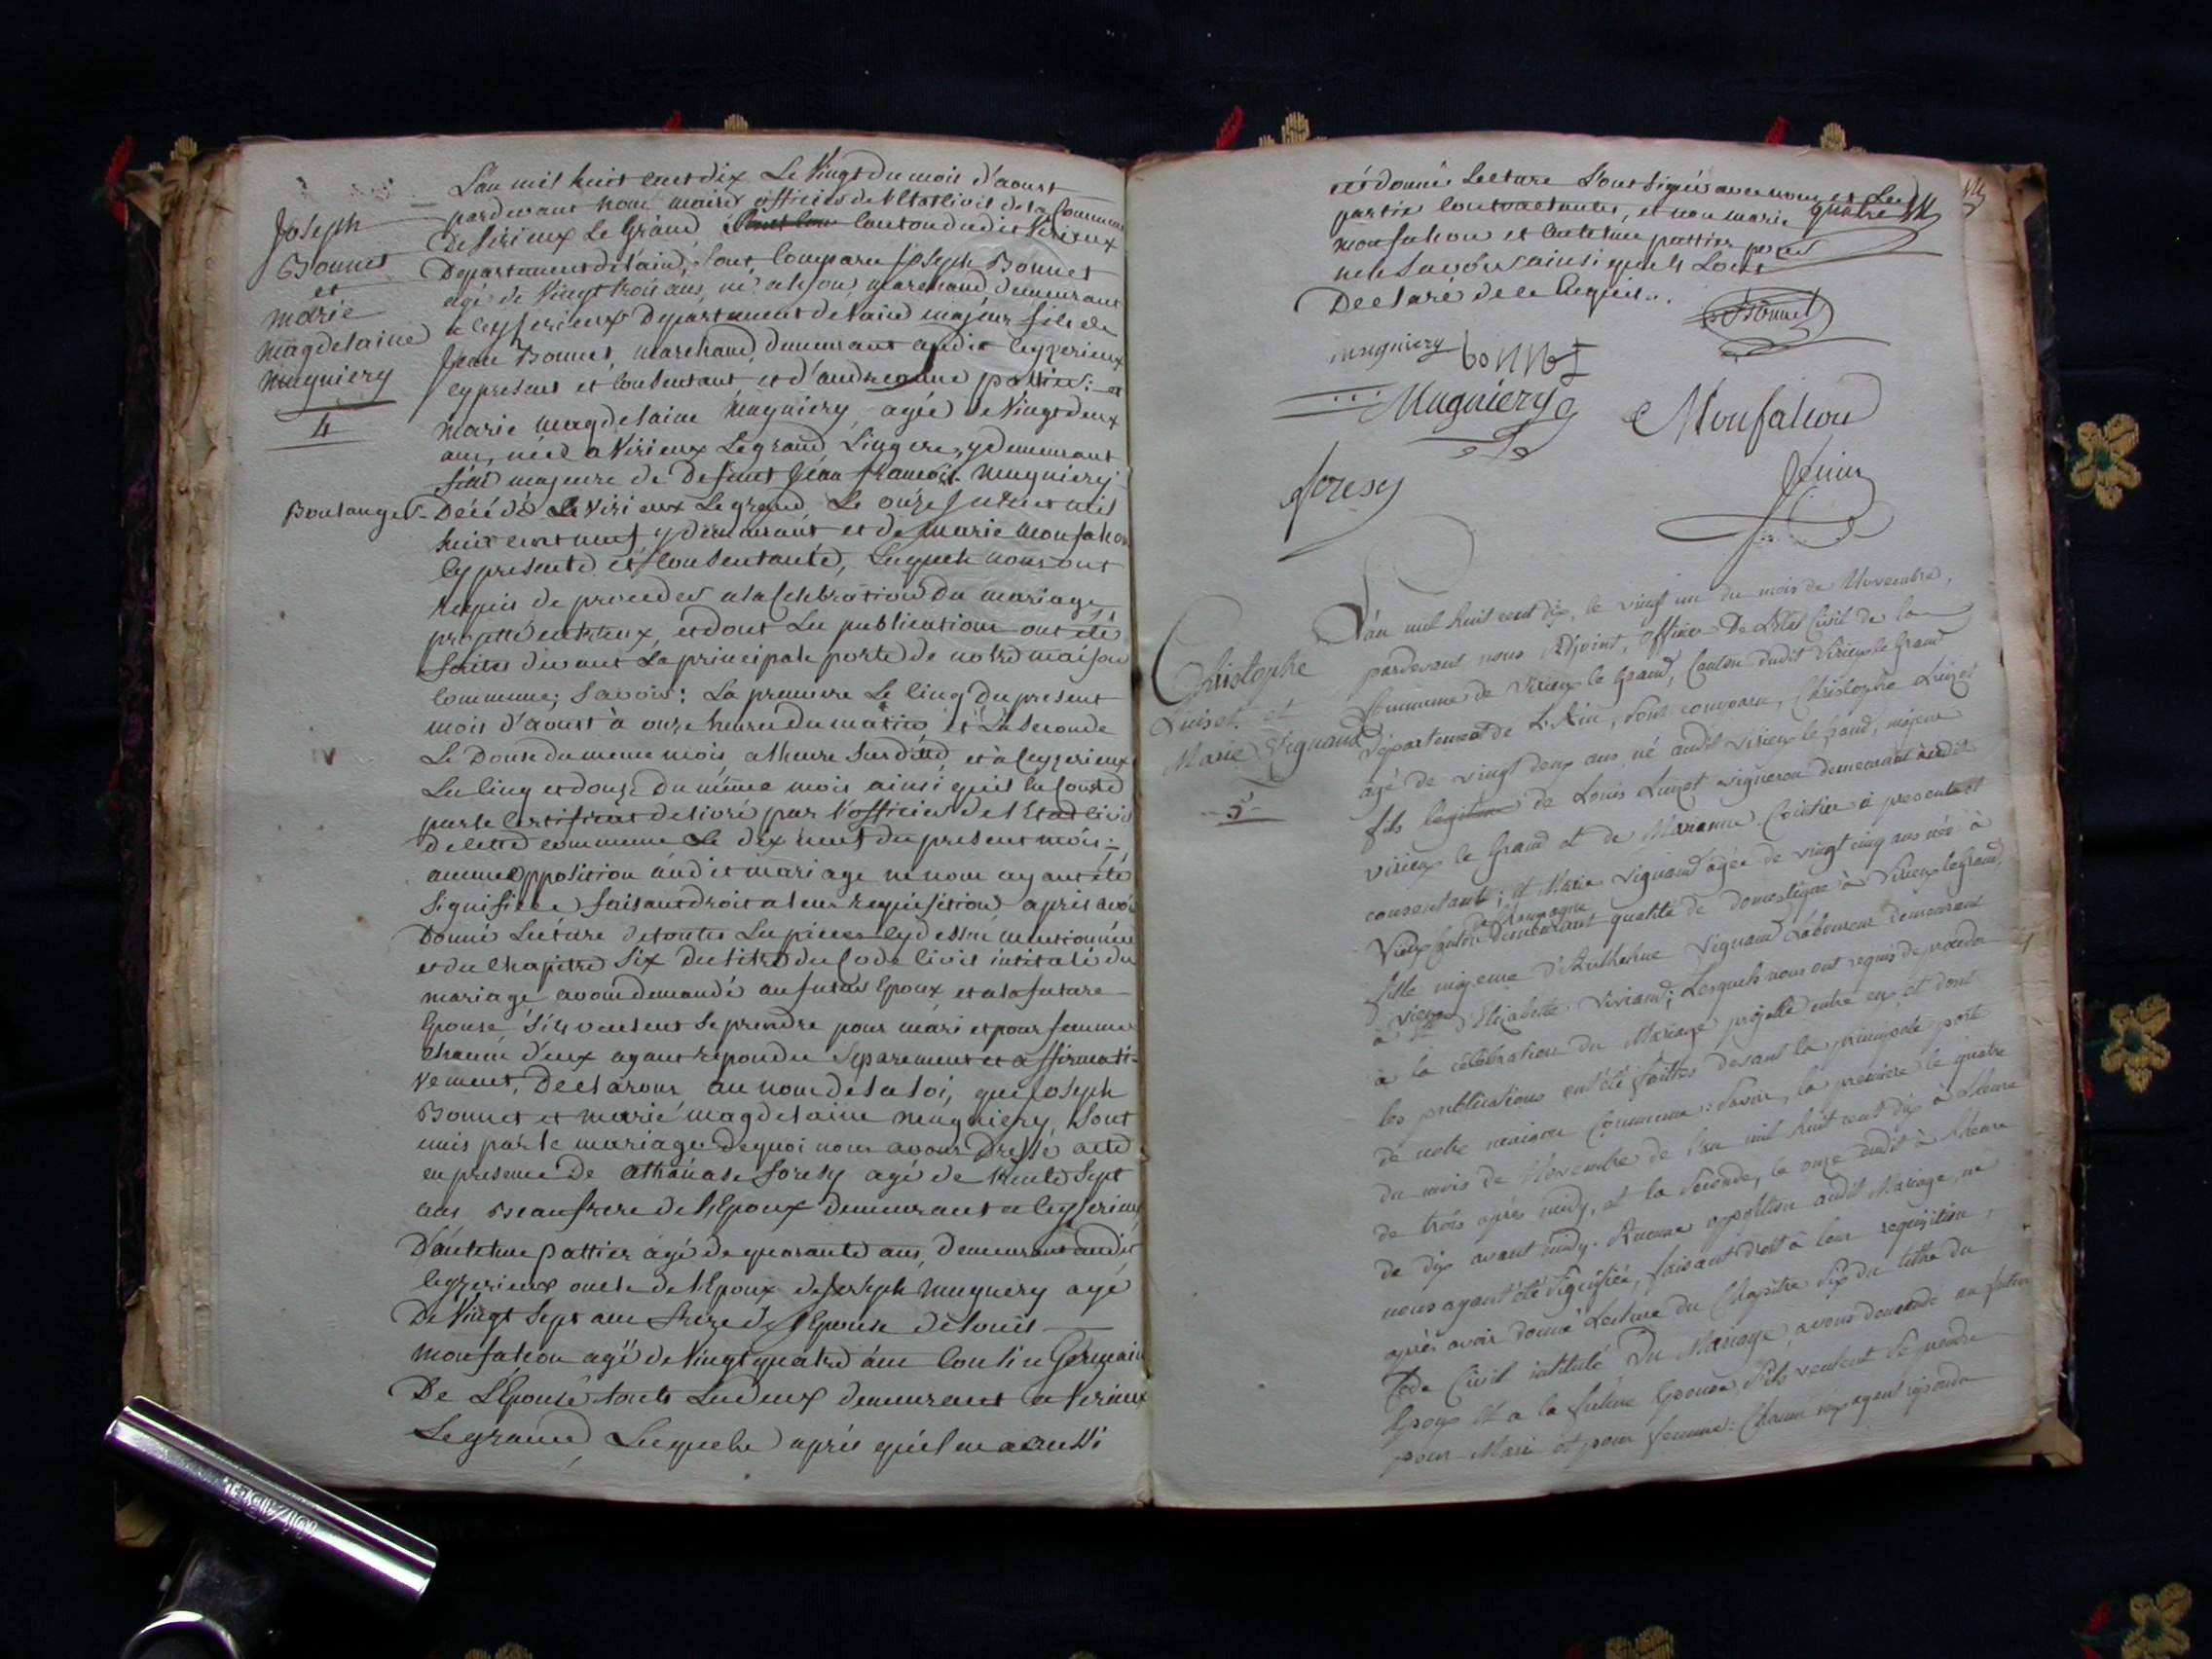 Joseph
Bonnet
et
marie
magdelaine
Mugniery
4
L'an mil huit cent dix Le Vingt du mois d'aoust
pardevant nous maire officier de l'Etat civil de la Commune
De Virieux Le Grand Canton dudit Virieux
Departement de l'ain, sont Comparu Joseph Bonnet
agé de Vingt trois ans, marchand demeurant
a Ceyzerieux Departement de l'ain majeur fils de
Jean Bonnet, marchand, demeurant audit Ceyzerieux
cy present et Consentant et d'andreanne pattier et
marie magdelaine Mugniery agée de Vingt deux
ans, née a Virieux Legrand, Lingere, y demeurant
fille majeure de Defunt Jean francois Mugniery
Boulanger Décédé a Virieux Legrand Le onze Juillet mil
huit cent neuf y demeurant et de Marie Monfalcon
Cy presente et Consentante, Lesquels nous ont
requis de proceder a la Celebration Du mariage
projetté entr'eux, et dont Les publications ont été
faites devant La principale porte de notre maison
Commune; Savoir: La premiere Le Cinq Du present
mois d'aoust à onze heures du matin et La Seconde
Le Douze du meme mois a l'heure Sus ditte, et à Ceyzerieux
Les Cinq et douze Du même mois ainsi qu'il en Conste
par le Certificat delivré par l'officier de l'Etat civil
de cette commune Le dix neuf du present mois
aucune opposition audit mariage ne nous ayant été
Signifiée, faisant droit a leur requisition après avoir
Donné Lecture de toutes Les pieces cy dessus mentionnées
et du Chapitre Six du titre du Code Civil intitulé du
mariage avons demandé au futur Epoux et a la future
Epouse S'ils veulent Se prendre pour mari et pour femme
chacun d'eux ayant repondu Separement et affirmati-
vement, Declarons au nom de la loi, que Joseph
Bonnet et marie magdelaine Mugniery, Sont
unis par le mariage. De quoi nous avons Dressé acte
en presence De athanase foresy agé de trente Sept
ans Beaufrere de l'Epoux Demeurant a Ceyzerieux
D'antelme pattier agé de quarante ans, demeurant audit
Ceyzerieux oncle de l'Epoux de Joseph Mugniery agé
De Vingt Sept ans frere de l'Epouse de Louis
monfalcon agé de Vingt quatre ans Cousin Germain
De L'Epouse touts Les deux demeurant a Virieux
Legrand, Lesquels après qu'il en a aussi
été donné Lecture L'ont Signé avec nous et Les
partie Contractantes, et non marie
monfalcon et antelme pattier pour
ne le Savoir ainsi qu'ils L'ont
Declaré de ce Enquis.
Bonnet
mugniery bonnet
Mugniery Monfalcon
foresy
Christophe
Luizet et
Marie Vignand
5
L'an mil huit cent dix, le vingt un du mois de Novembre,
pardevant nous Adjoint, Officier De L'Etat Civil de la
Commune de Virieux le Grand, Canton dudit Virieux le Grand
Departement de L'Ain, sont comparu, Christophe Luizet
agé de vingt deux ans né audit virieux le grand, majeur
fils légitime de Louis Luizet vigneron demeurant audit
virieux le Grand et de Marianne à present et
consentante; et Marie vignand agée de vingt cinq ans née à
Vieux Canton de Champagne demeurant qualité de domestique à Virieux le Grand,
fille majeure d'Anthelme Vignand Laboureur demeurant
à Vieux et d'Elizabette Viviand; Lesquels nous ont requis de proceder
à la célébration du Mariage projetté entre eux, et dont
les publications ont été faittes devant la principale porte
de notre maison Commune: Savoir, la première le quatre
du mois de Novembre de l'an mil huit cent dix à l'heure
de trois après midy, et la Seconde, le onze dudit à l'heure
de dix avant midy. Aucune opposition audit Mariage, ne
nous ayant été Signifiée, faisant droit à leur requisition,
après avoir donné Lecture du Chapitre Six du titre du
Code Civil intitulé Du Mariage, avons demandé au futur
Epoux et a la future Epouse, S'ils veulent Se prendre
pour Mari et pour femme: Chacun d'eux ayant repondu